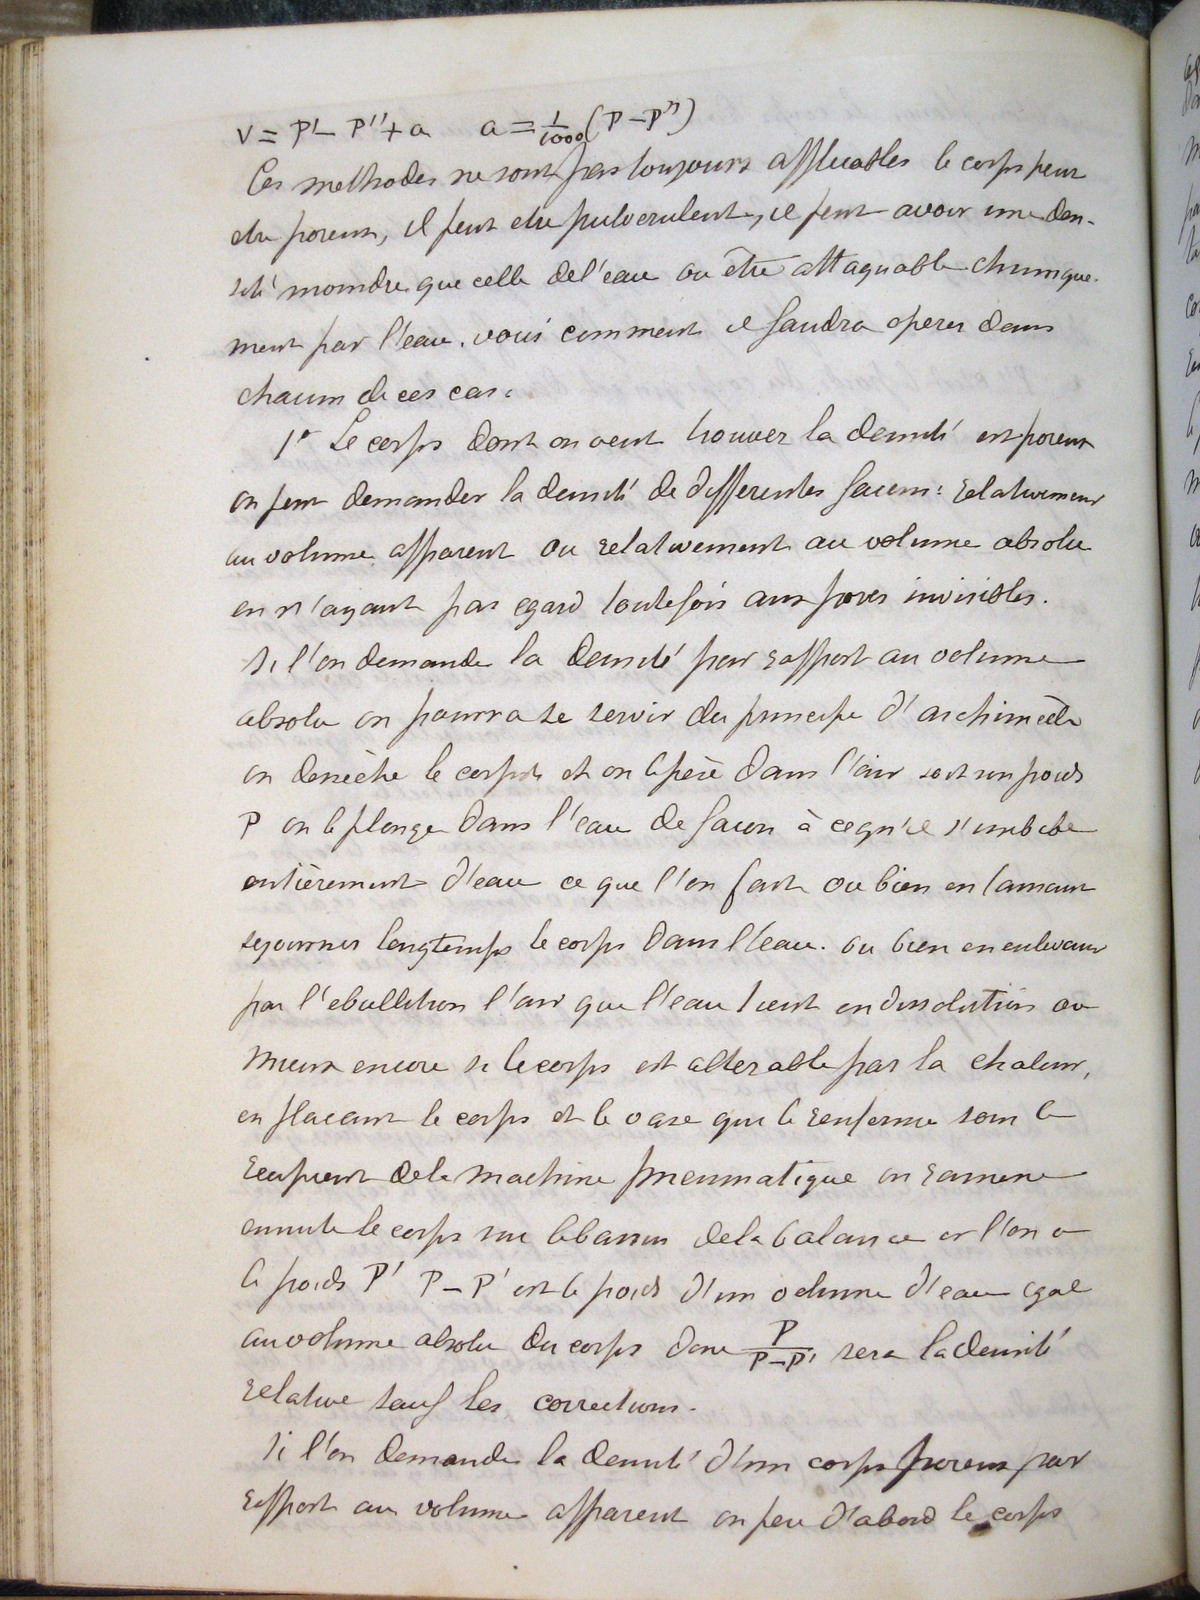 v = P' – P'' + a    a = 1/1000 (P – P'')
Ces methodes ne sont pas toujours applicables le corps peut
etre poreux, il peut etre pulverulent, il peut avoir une den-
sité moindre que celle de l'eau ou être attaquable chimique-
ment par l'eau. voici comment il faudra operer dans
chacun de ces cas :
1° Le corps dont on veut trouver la densité est poreux
on peut demander la densité de differentes facons : relativement
au volume apparent ou relativement au volume absolu
en n'ayant pas egard toutefois aux pores invisibles.
Si l'on demande la densité par rapport au volume
absolu on pourra se servir du principe d'archimède
on dessèche le corps et on le pèse dans l'air soit son poids
P on le plonge dans l'eau de facon à ce qu'il s'imbibe
entièrement d'eau ce que l'on fait ou bien en laissant
sejourner longtemps le corps dans l'eau. ou bien en enlevant
par l'ebullition l'air que l'eau tient en dissolution ou
mieux encore si le corps est alterable par la chaleur,
en placant le corps et le vase qui le renferme sous le
recipient de la machine pneumatique on ramene
ensuite le corps sur le bassin de la balance et l'on a
le poids P' P – P' est le poids d'un volume d'eau egal
au volume absolu du corps donc P/P–P' sera la densité
relative sauf les corrections.
Si l'on demande la densité d'un corps poreux par
rapport au volume apparent on pese d'abord le corps